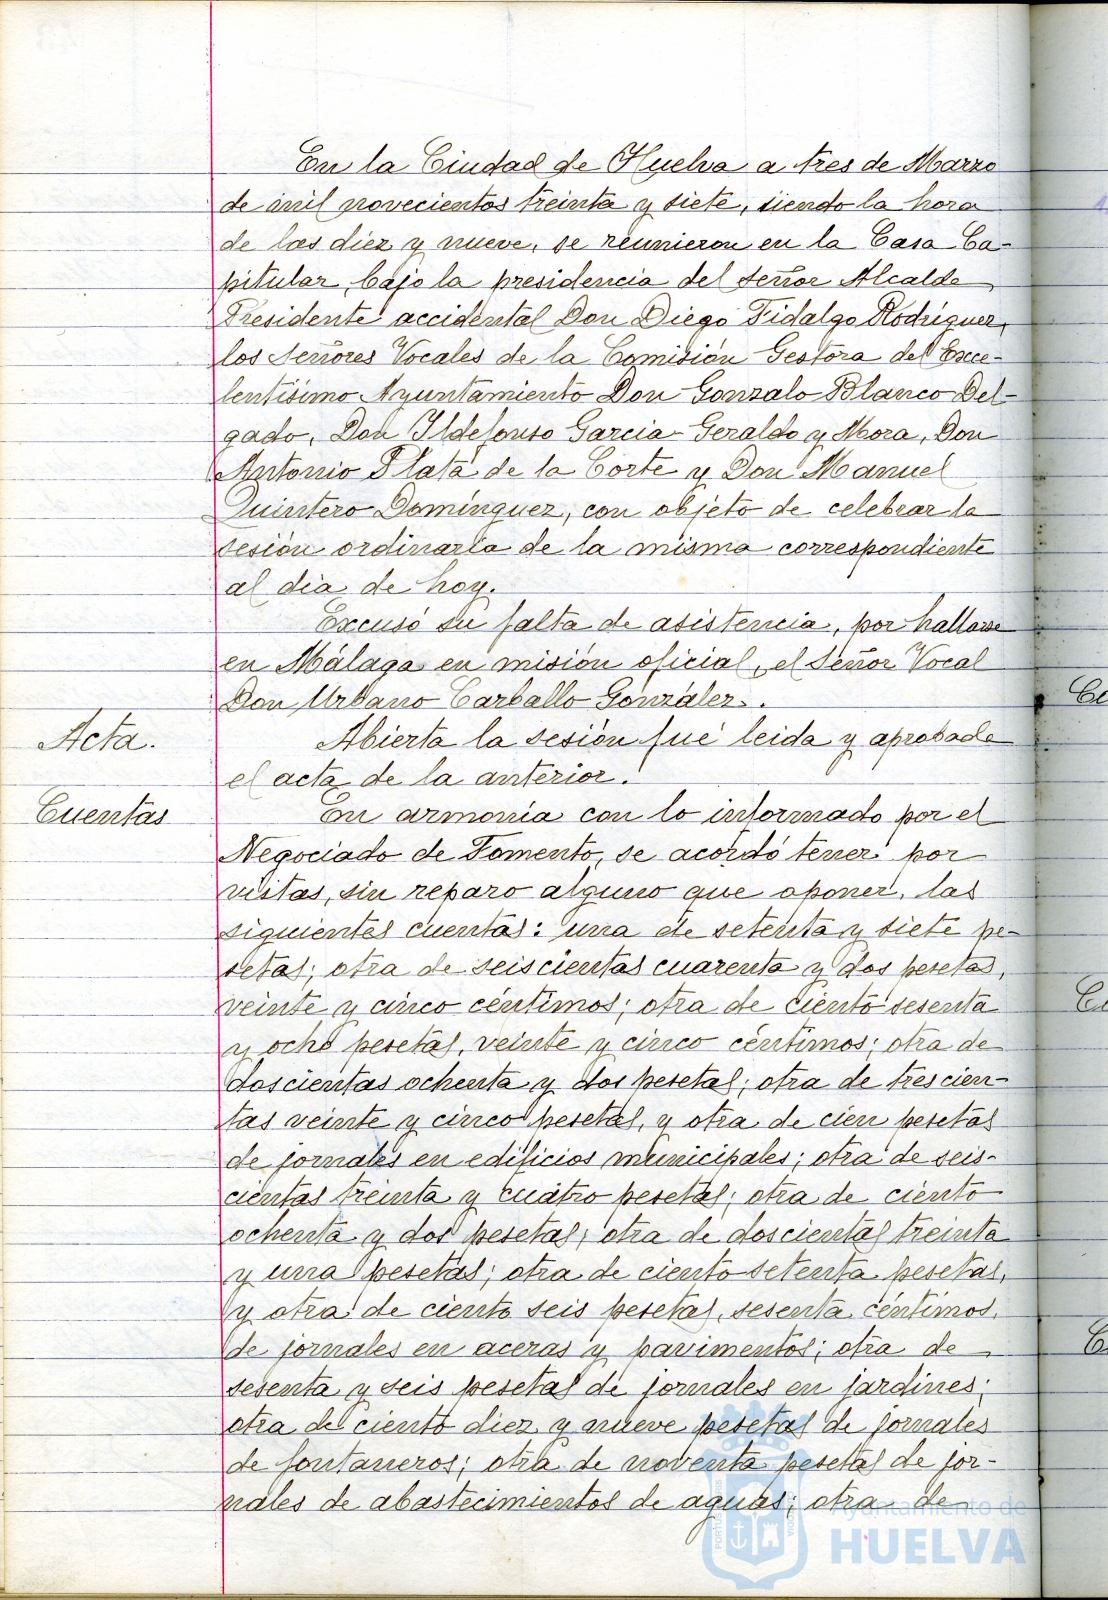 En la Ciudad de Huelva a tres de Marzo
de mil novecientos treinta y siete, siendo la hora
de las diez y nueve, se reunieron en la Casa Ca-
pitular, bajo la presidencia del señor Alcalde
Presidente accidental Don Diego Fidalgo Rodríguez,
los Señores Vocales de la Comisión Gestora del Exce-
lentísimo Ayuntamiento Don Gonzalo Blanco Del-
gado, Don Ildefonso Garcia-Geraldo y Mora, Don
Antonio Plata de la Corte y Don Manuel
Quintero Domínguez, con objeto de celebrar la
sesión ordinaria de la misma correspondiente
al dia de hoy.
Excusó su falta de asistencia, por hallarse
en Málaga en misión oficial, el Señor Vocal
Don Urbano Carballo González.
Acta.
Abierta la sesión fué leida y aprobada
el acta de la anterior.
Cuentas
En armonía con lo informado por el
Negociado de Fomento, se acordó tener por
vistas, sin reparo alguno que oponer, las
siguientes cuentas: una de setenta y siete pe-
setas; otra de seiscientas cuarenta y dos pesetas,
veinte y cinco céntimos; otra de ciento sesenta
y ocho pesetas, veinte y cinco céntimos; otra de
doscientas ochenta y dos pesetas; otra de trescien-
tas veinte y cinco pesetas, y otra de cien pesetas
de jornales en edificios municipales; otra de seis-
cientas treinta y cuatro pesetas; otra de ciento
ochenta y dos pesetas; otra de doscientas treinta
y una pesetas; otra de ciento setenta pesetas,
y otra de ciento seis pesetas, sesenta céntimos,
de jornales en aceras y pavimentos; otra de
sesenta y seis pesetas de jornales en jardines;
otra de ciento diez y nueve pesetas de jornales
de fontaneros; otra de noventa pesetas de jor-
nales de abastecimientos de aguas; otra de
Ayuntamiento de
HUELVA